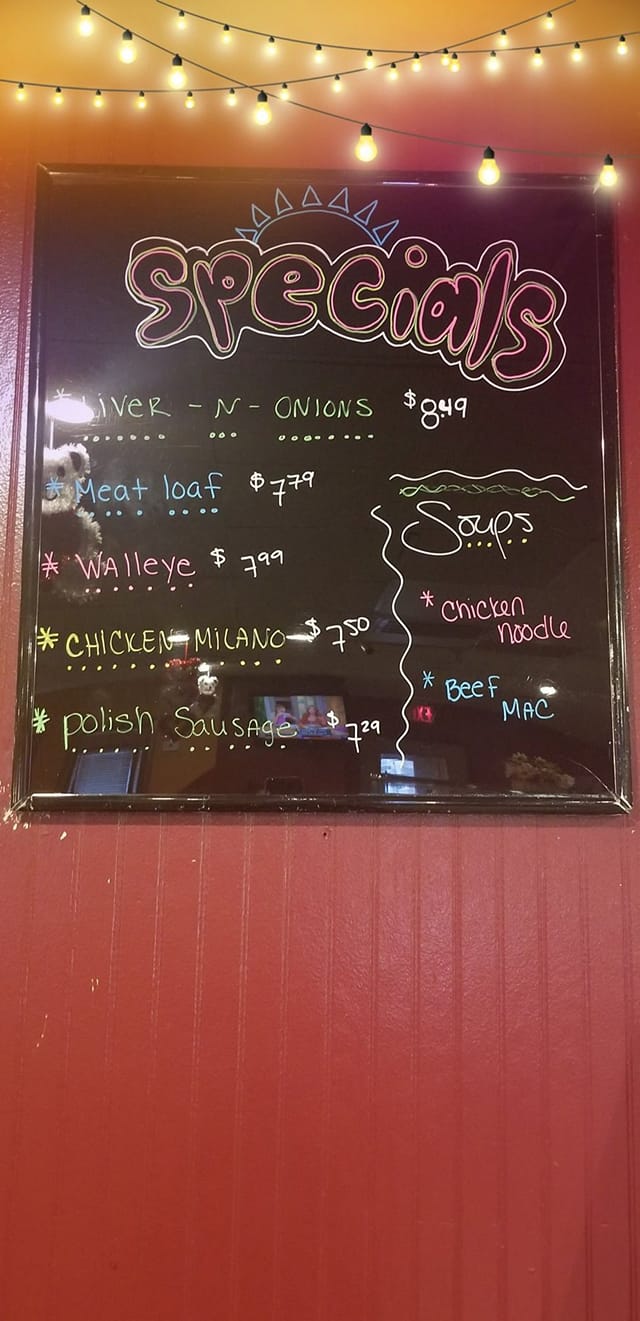 Specials
* LIVER - N - ONIONS $8.49
* Meat loaf $7.79
* Walleye $7.99
* CHICKEN MILANO $7.50
* polish Sausage $7.29
Soups
* Chicken
noodle
* Beef
MAC